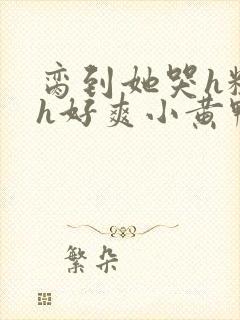 脔到她哭h
h好爽小黄
繁朵